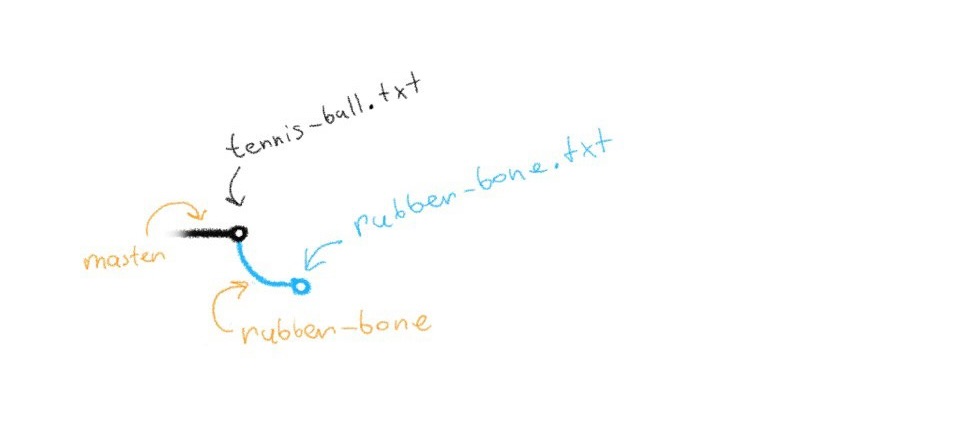 tennis-ball.txt
rubber-bone.txt
master
rubber-bone